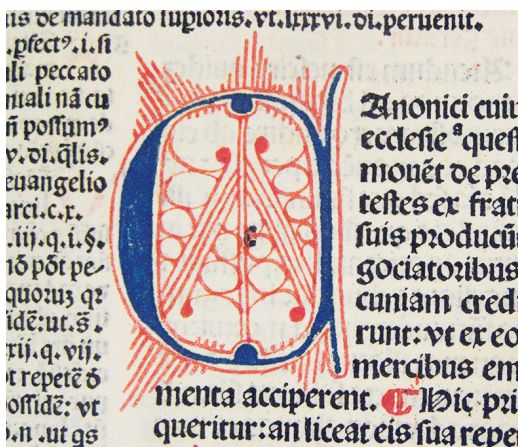 us de mandato supioris. vt. lxxxvi. di. peruenit.
.pfectꝰ. i. si
ali peccato
niali nā cu
n̄ possumꝰ
v. di. q̄lis.
euangelio
arci. c. x.
.iij. q. i. §.
nō pōt pe⸗
quoruꝫ qꝛ
idē: ut. s̄.
xij. q. vij.
t repetē ꝺ
offidē: vt
o. n. ut qs
C
Anonici cuiu
ecclesie a quest
mouēt de pre
testes ex frat
suis producūt
gociatoribus
cuniam credi
runt: vt ex eo
mercibus em
menta acciperent. ¶ Hic pri
queritur: an liceat eis sua repe